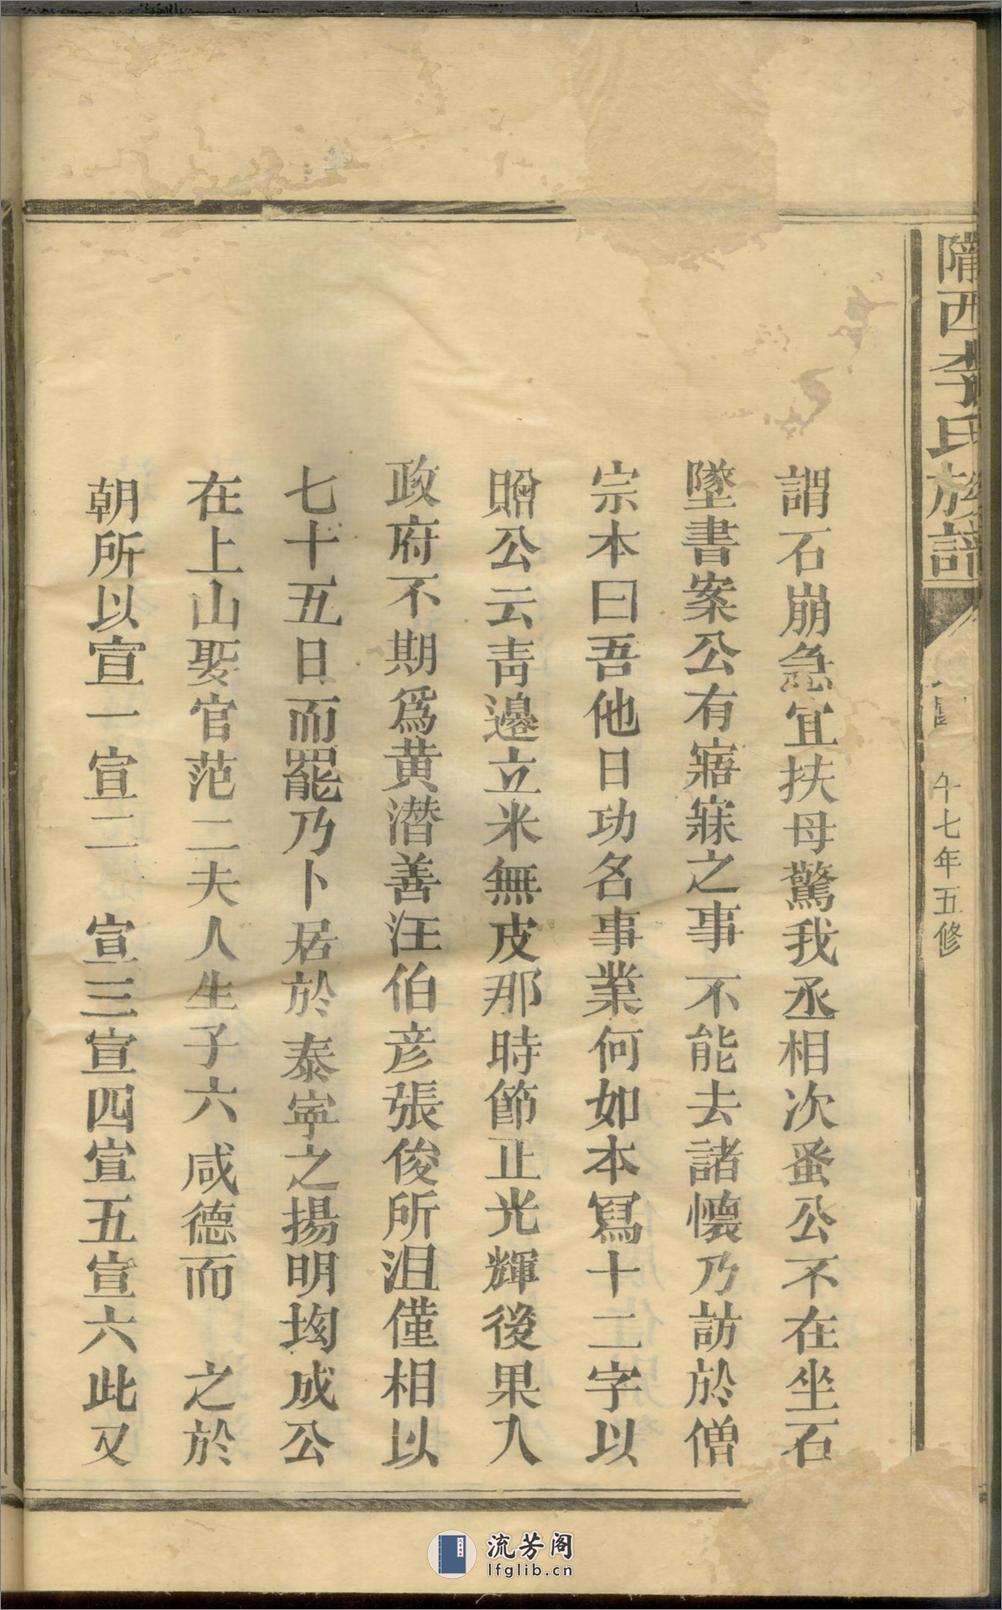 隴西李氏族譜
七年五修
謂石崩急宜扶母驚我丞相次蚤公不在坐石
墜書案公有寤寐之事不能去諸懷乃訪於僧
宗本曰吾他日功名事業何如本寫十二字以
贈公云靑邉立米無皮那時節正光輝後果入
政府不期爲黄潜善汪伯彦張俊所沮僅相以
七十五日而罷乃卜居於泰寧之揚明坳成公
在上山娶官范二夫人生子六咸德而 之於
朝所以宣一宣二 宣三宣四宣五宣六此又
流芳阁
lfglib.cn